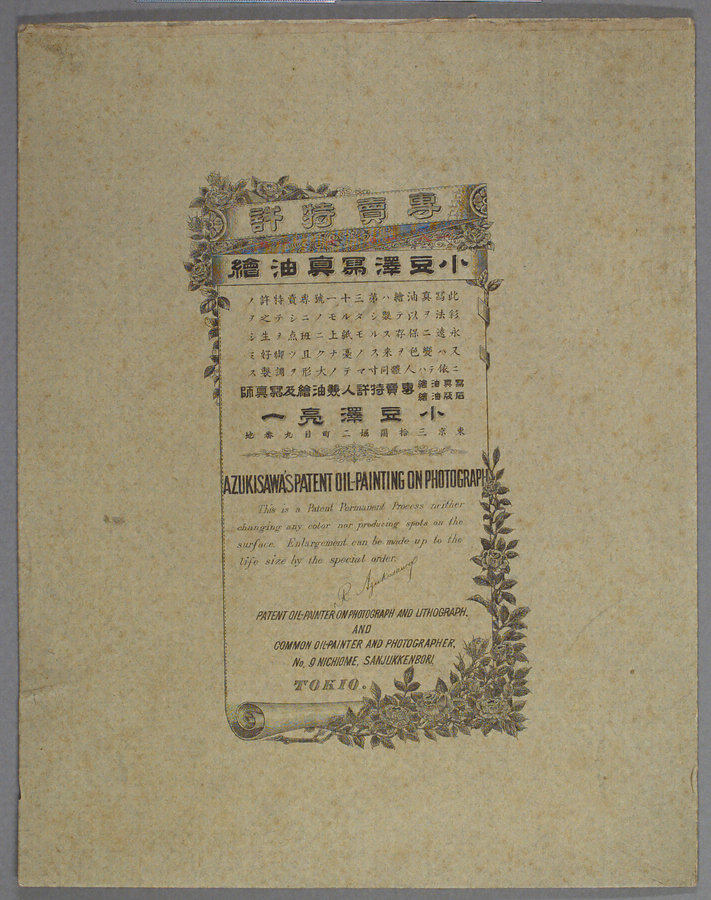 專賣特許
小豆澤寫真油繪
此寫真油繪ハ第三十一號專賣特許ノ
彩法ヲ以テ製シタルモノニシテ之ヲ
永遠ニ保存スルモ紙上ニ班点ヲ生シ
又ハ變色ヲ來スノ憂ナク且ツ御好ミ
ニ依テハ人體同寸マテノ大形ヲ調製ス
寫真油繪
石版油繪
專賣特許人兼油繪及寫真師
小豆澤亮一
東京三拾間堀二町目九番地
AZUKISAWA'S PATENT OIL-PAINTING ON PHOTOGRAPH
This is a Patent Permanent Process neither
changing any color nor producing spots on the
surface. Enlargement can be made up to the
life size by the special order.
R. Azukisawa
PATENT OIL-PAINTER ON PHOTOGRAPH AND LITHOGRAPH,
AND
COMMON OIL-PAINTER AND PHOTOGRAPHER,
No, 9 NICHIOME, SANJUKKENBORI,
TOKIO.